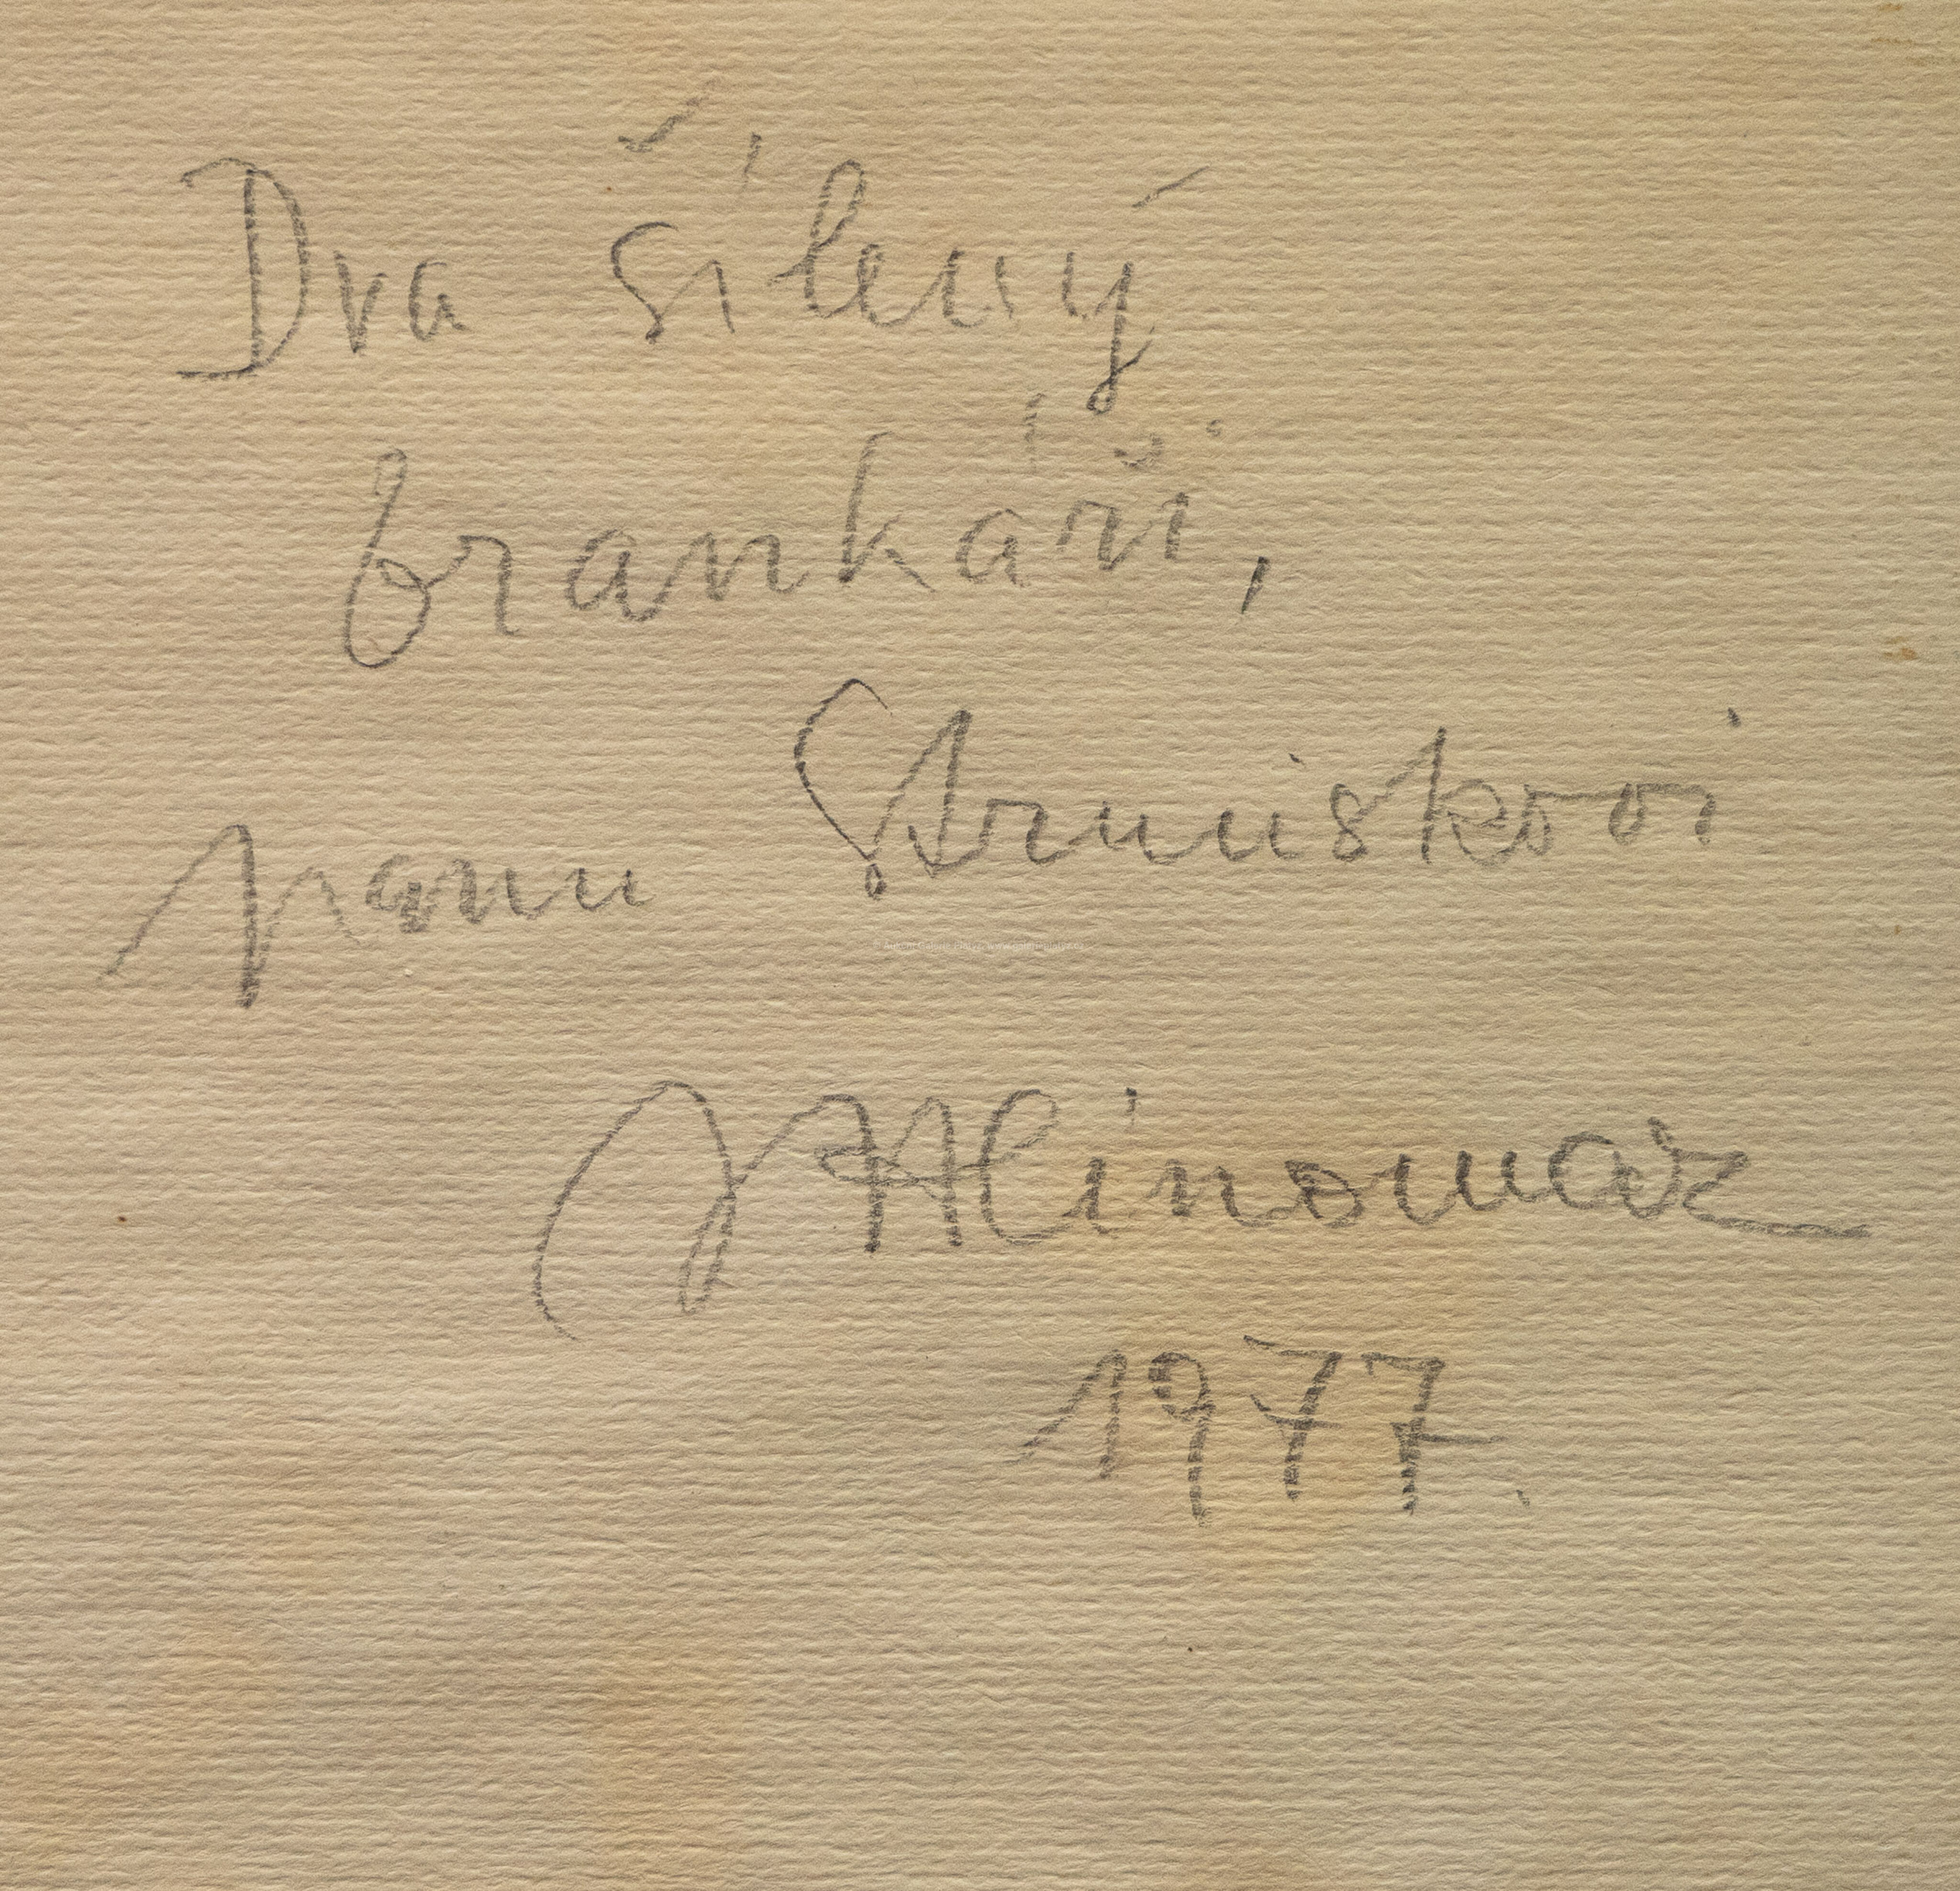 Dva šílený
brankáři,
panu Strniskovi
J Hlinomaz
1977.